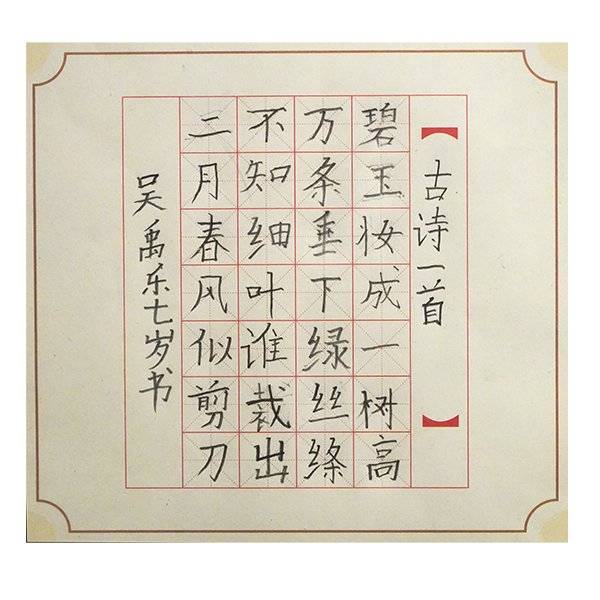 古诗一首
碧玉妆成一树高
万条垂下绿丝绦
不知细叶谁裁出
二月春风似剪刀
吴禹乐七岁书